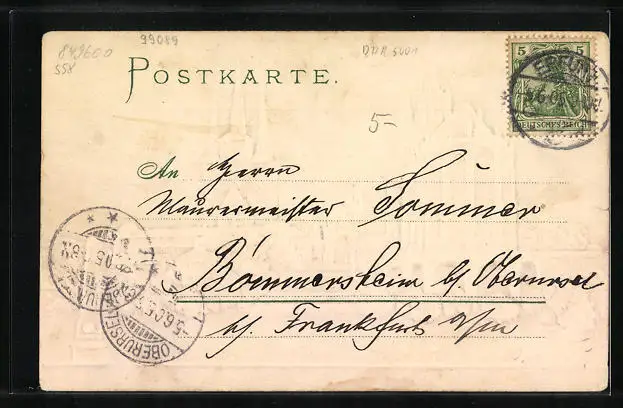 849600
SSK
99089
POSTKARTE.
5
DEUTSCHES REICH
ERFURT
5-
An Herrn
Maurermeister Sommer
Bommersheim b/ Oberursel
b/ Frankfurt a/m
OBERURSEL
5.6.05